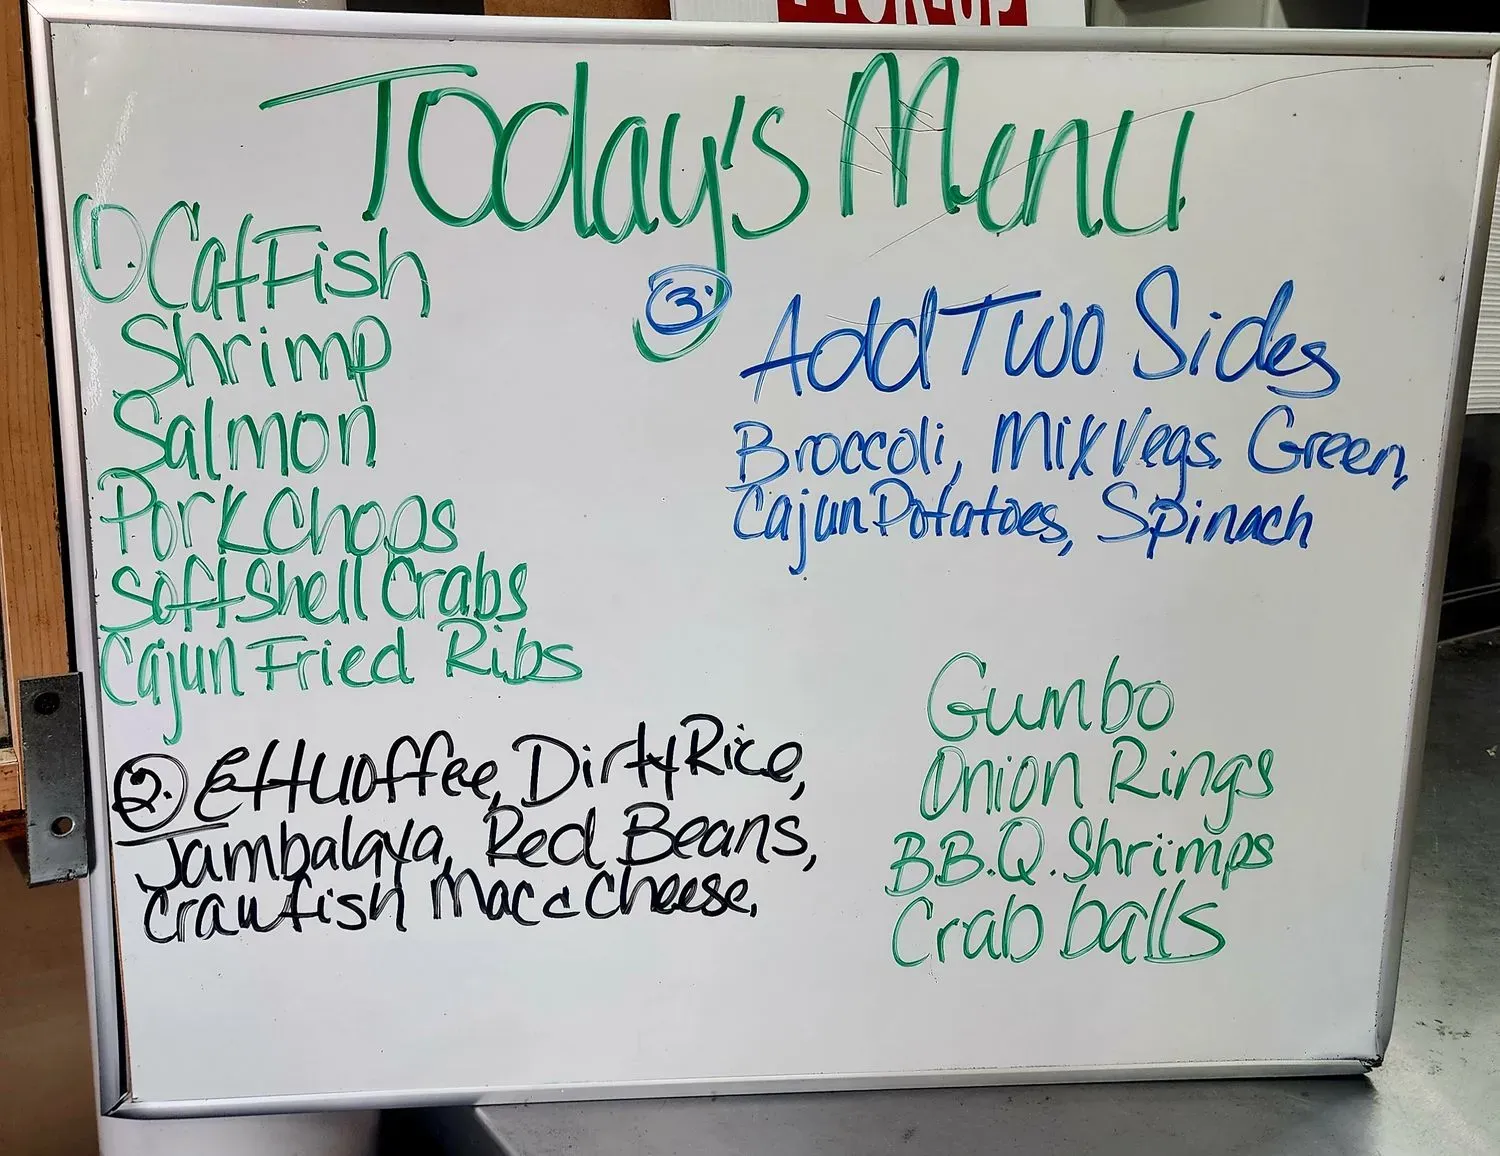 PICK-UP
Today's Menu
1. CatFish
Shrimp
Salmon
Pork Chops
Soft Shell Crabs
Cajun Fried Ribs
2. Ettuoffee, Dirty Rice,
Jambalaya, Red Beans,
Crawfish Mac c Cheese.
3. Add Two Sides
Broccoli, Mix Vegs. Green,
Cajun Potatoes, Spinach
Gumbo
Onion Rings
B.B.Q. Shrimps
Crab balls